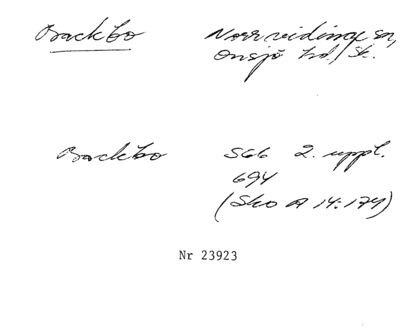 Backbo Norrvidinge sn,
Onsjö hd./Sk.
Backbo SGG 2. uppl.
694
(Sko A 14:174)
Nr 23923